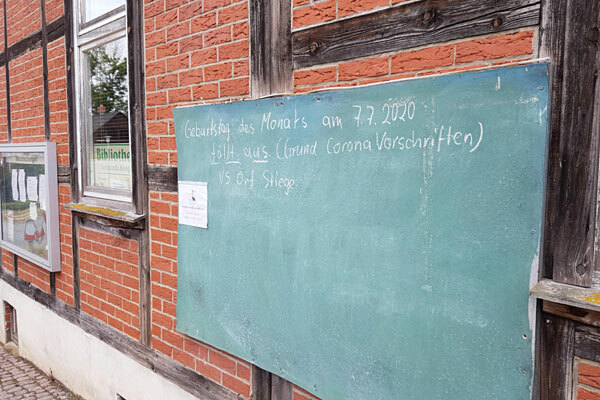 Geburtstag des Monats am 7.7.2020
fällt aus (Grund Corona Vorschriften)
VS Ort Stiege
Bibliothe